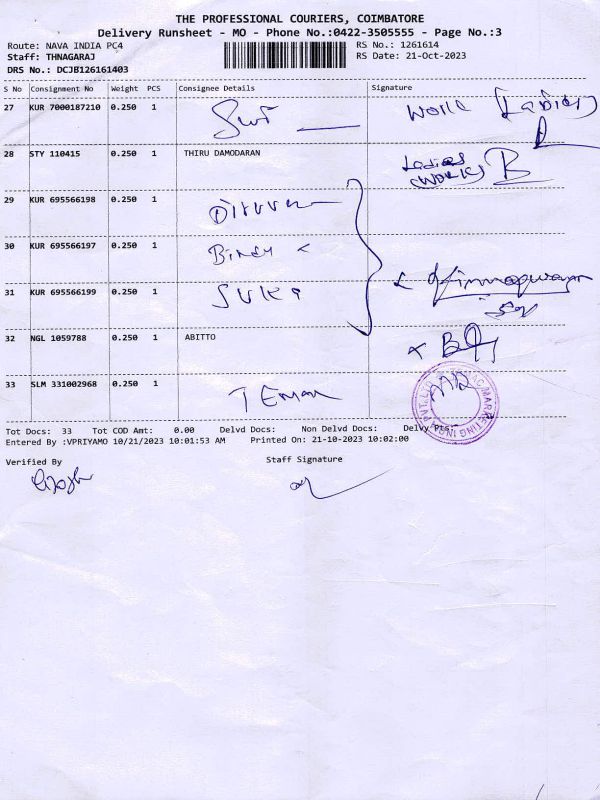 THE PROFESSIONAL COURIERS, COIMBATORE
Delivery Runsheet - MO - Phone No.:0422-3505555 - Page No.:3
Route: NAVA INDIA PC4 RS No.: 1261614
Staff: THNAGARAJ RS Date: 21-Oct-2023
DRS No.: DCJB126161403
S No Consignment No Weight PCS Consignee Details Signature
27 KUR 7000187210 0.250 1 WORK
28 STY 110415 0.250 1 THIRU DAMODARAN Ladies (WORKS)
29 KUR 695566198 0.250 1
30 KUR 695566197 0.250 1
31 KUR 695566199 0.250 1
32 NGL 1059788 0.250 1 ABITTO
33 SLM 331002968 0.250 1
Tot Docs: 33 Tot COD Amt: 0.00 Delvd Docs: Non Delvd Docs: Delvy Pts
Entered By :VPRIYAMO 10/21/2023 10:01:53 AM Printed On: 21-10-2023 10:02:00
Verified By Staff Signature